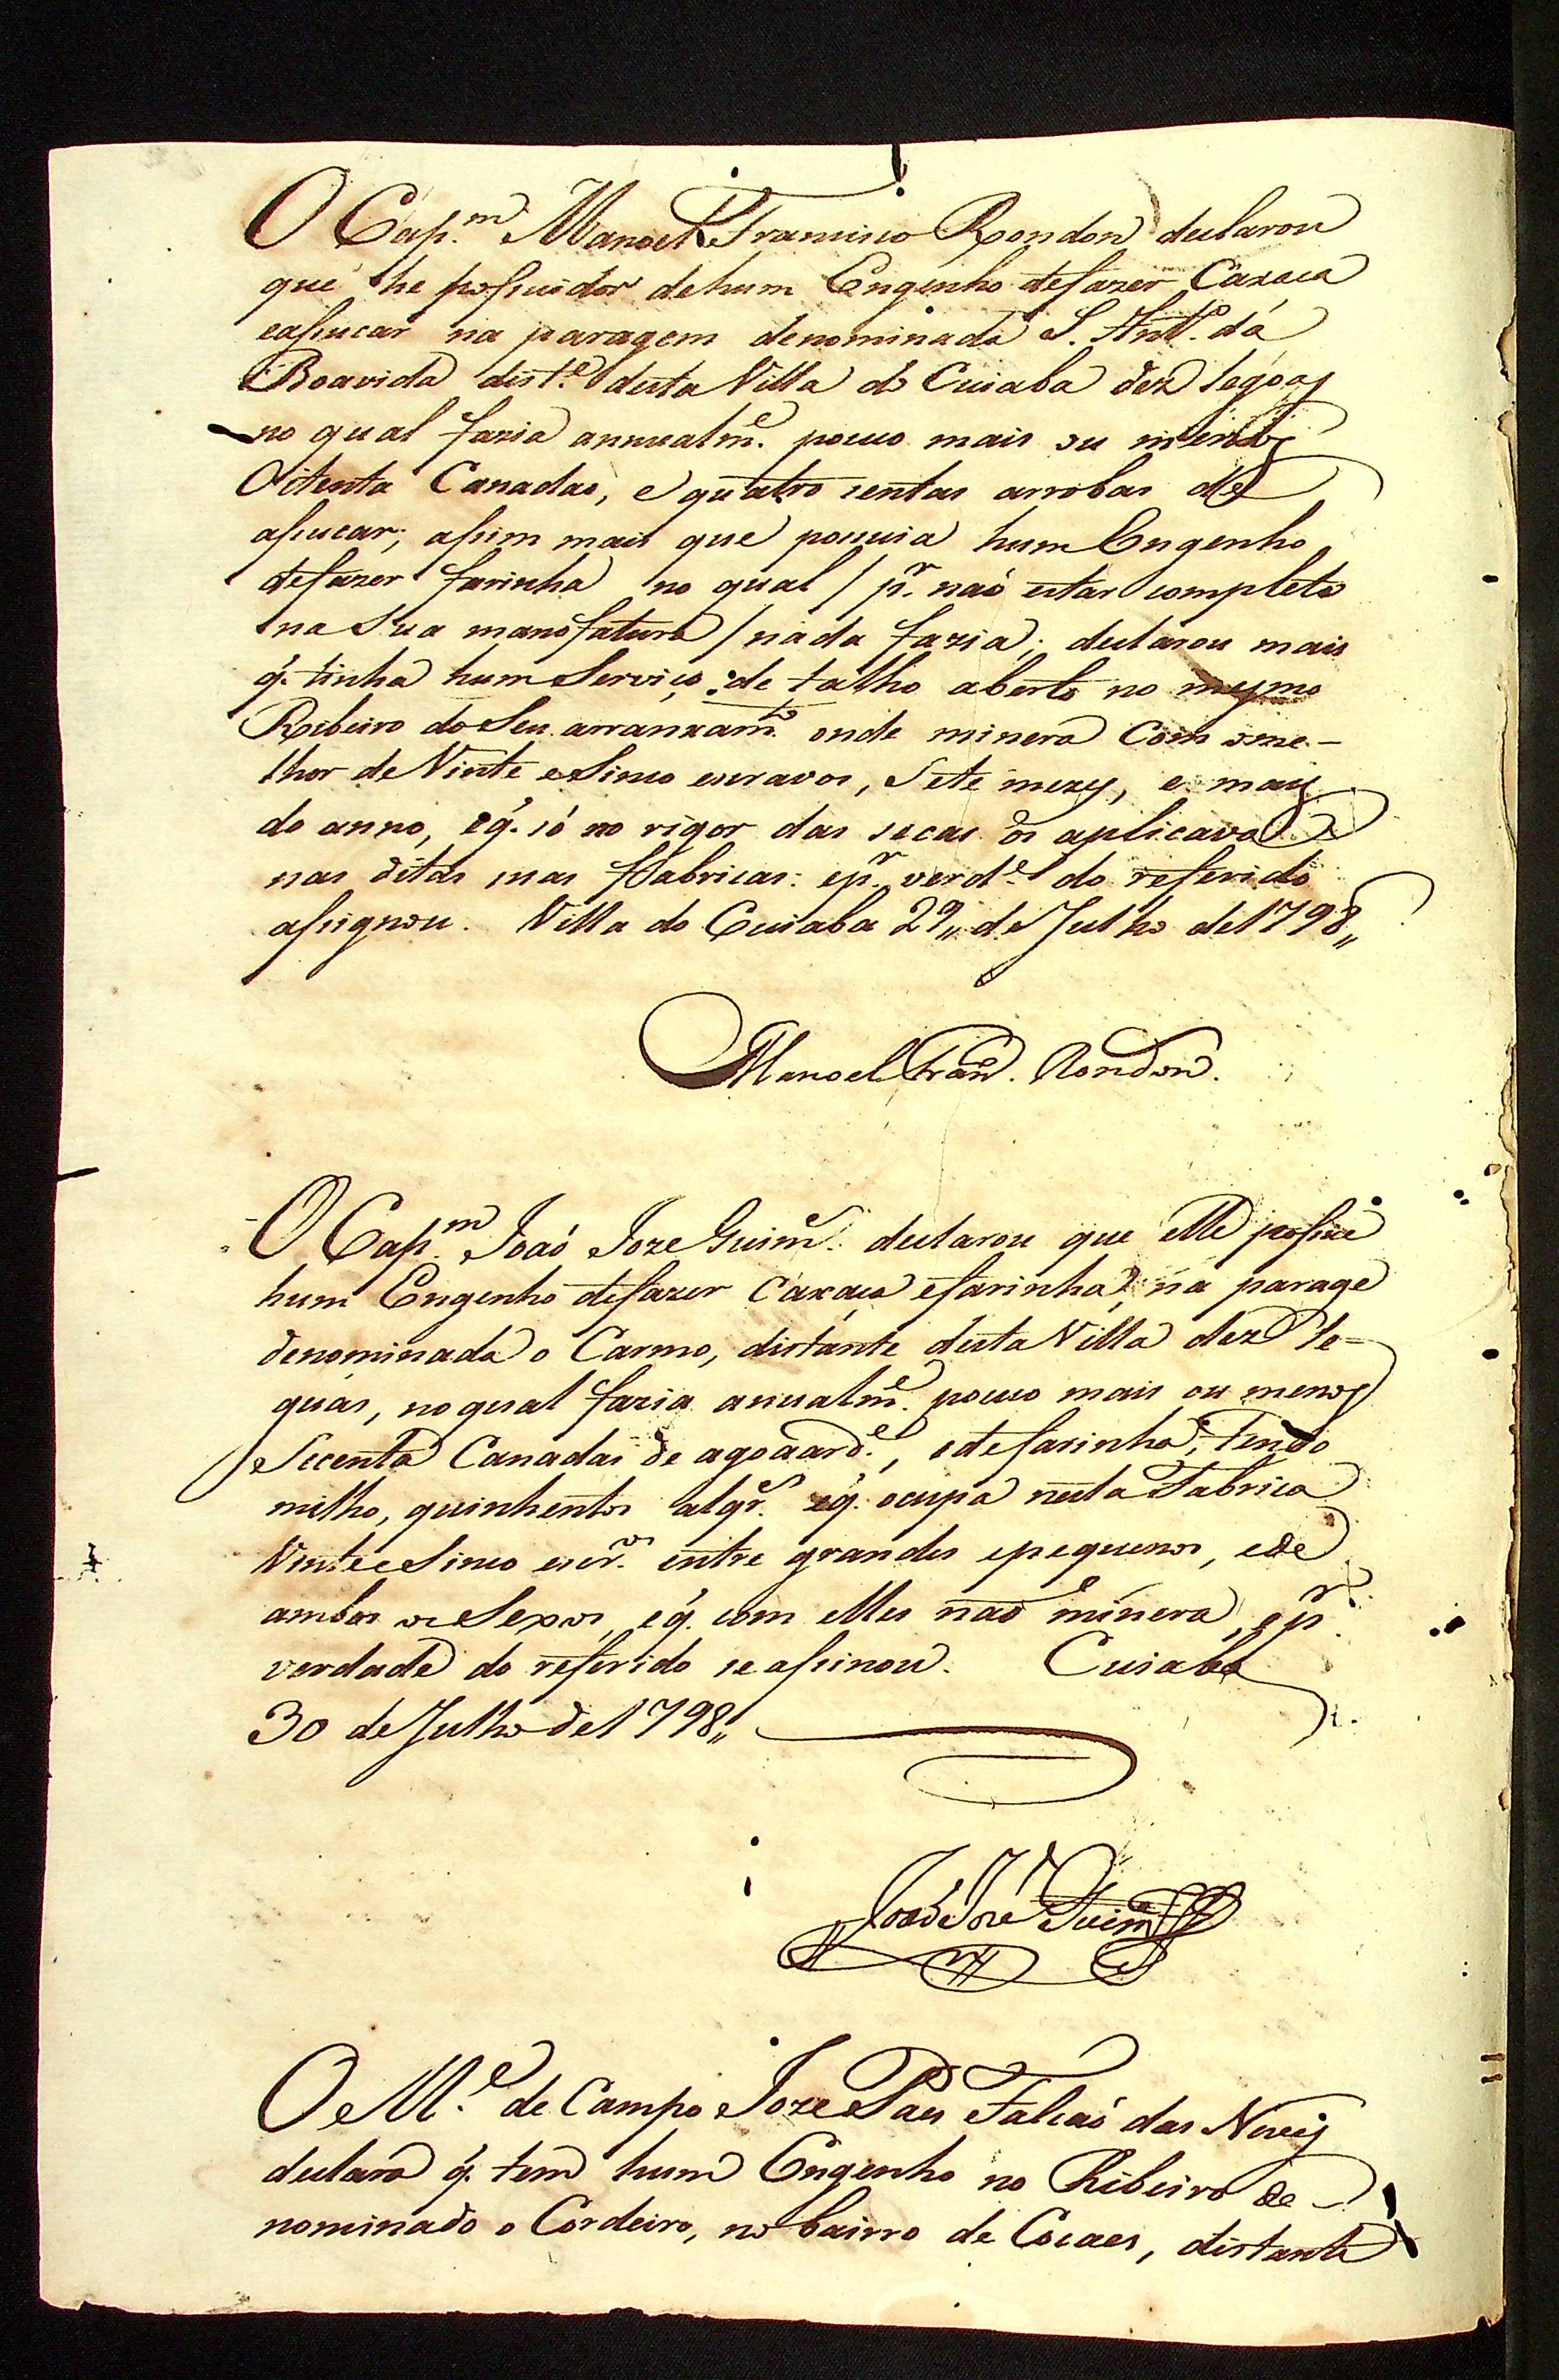 O Cap.m Manoel Francisco Rondon declarou
que he possuidor dehum Engenho defazer Caxaca
eassucar na paragem denominada S. Ant.o da
Boavida dist.e desta Villa do Cuiaba dez legoas
no qual fazia annualm.e pouco mais ou menos
Oitenta Canadas, e quatro sentas arrobas de
assucar; assim mais que possuia hum Engenho
defazer farinha no qual / p.r naó estar completo
na Sua manofatura / nada fazia; declarou mais
q. tinha hum Serviço de talho aberto no mesmo
Ribeiro do Seu arranxam.to onde minera Com ome-
lhor de Vinte eSinco escravos, Sete mezes, e mais
do anno, eq. só no rigor das secas os aplicava
nas ditas suas fabricas: ep.r verd.e do referido
assignou. Villa do Cuiaba 29,, de Julho de1798,,
Manoel Fran.co Rondon.
O Cap.m Joaó Joze Guim.es declarou que elle possue
hum Engenho defazer Caxaça efarinha, na parage
denominada o Carmo, distante desta Villa dez le-
guas, noqual fazia anualm.e pouco mais ou menos
Secenta Canadas de agoaard.e, edefarinha, tendo
milho, quinhentos alqr.es eq. ocupa nesta Fabrica
VinteeSinco escr.os entre grandes epequenos, ede
ambos os Sexos, eq. com elles naó minera, ep.r
verdade do referido se assinou. Cuiaba
30 de Julho de1798,,
Joaó Joze Guim.es
O M.e de Campo Joze Paes Falcaó das Neves
declara q. tem hum Engenho no Ribeiro de-
nominado o Cordeiro, no bairro de Cocaes, distante